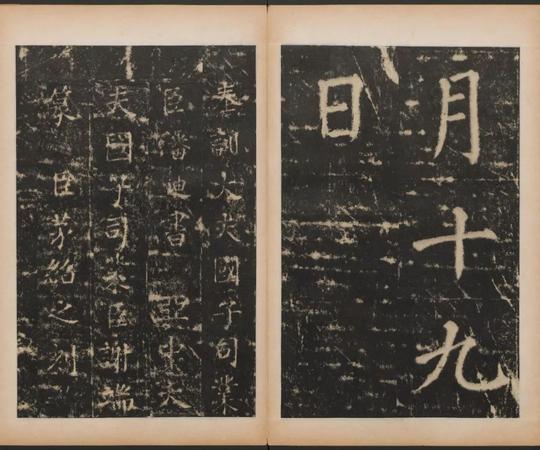 月十九
日
奉訓大夫國子司業
臣潘迪書 中大
夫國子司業臣謝端
篆 臣茅紹之刻